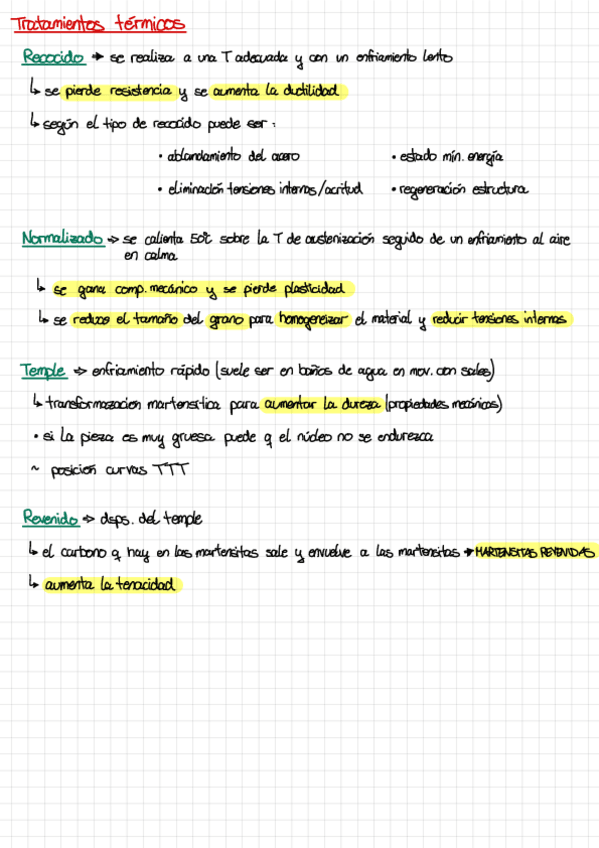 Tratamientos térmicos
Recocido → se realiza a una T adecuada y con un enfriamiento lento
↳ se pierde resistencia y se aumenta la ductilidad
↳ según el tipo de recocido puede ser:
• ablandamiento del acero • estado mín. energía
• eliminación tensiones internas/acritud • regeneración estructura
Normalizado → se calienta 50ºC sobre la T de austenización seguido de un enfriamiento al aire
en calma
↳ se gana comp. mecánico y se pierde plasticidad
↳ se reduce el tamaño del grano para homogeneizar el material y reducir tensiones internas
Temple → enfriamiento rápido (suele ser en baños de agua en mov. con sales)
↳ transformazacion martensítica para aumentar la dureza (propiedades mecánicas)
• si la pieza es muy gruesa puede q el núcleo no se endurezca
~ posición curvas TTT
Revenido → dsps. del temple
↳ el carbono q hay en las martensitas sale y envuelve a las martensitas → MARTENSITAS REVENIDAS
↳ aumenta la tenacidad